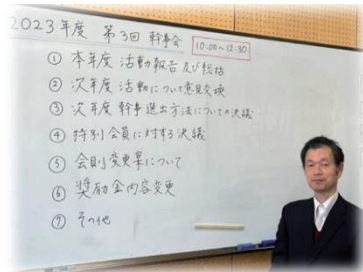 2023年度 第3回 幹事会 10:00~12:30
① 本年度 活動報告及び総括
② 次年度 活動について意見交換
③ 次年度 幹事選出方法についての決議
④ 特別会員に対する決議
⑤ 会則変更案について
⑥ 奨励金内容変更
⑦ その他